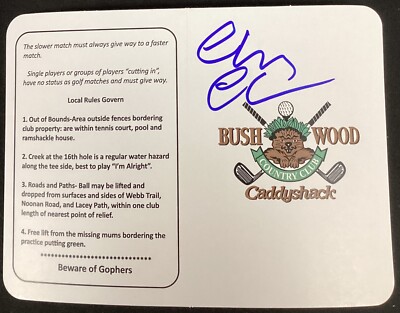 The slower match must always give way to a faster
match.
Single players or groups of players "cutting in",
have no status as golf matches and must give way.
Local Rules Govern
1. Out of Bounds-Area outside fences bordering
club property: are within tennis court, pool and
ramshackle house.
2. Creek at the 16th hole is a regular water hazard
along the tee side, best to play "I'm Alright".
3. Roads and Paths- Ball may be lifted and
dropped from surfaces and sides of Webb Trail,
Noonan Road, and Lacey Path, within one club
length of nearest point of relief.
4. Free lift from the missing mums bordering the
practice putting green.
Beware of Gophers
BUSH WOOD
COUNTRY CLUB
Caddyshack